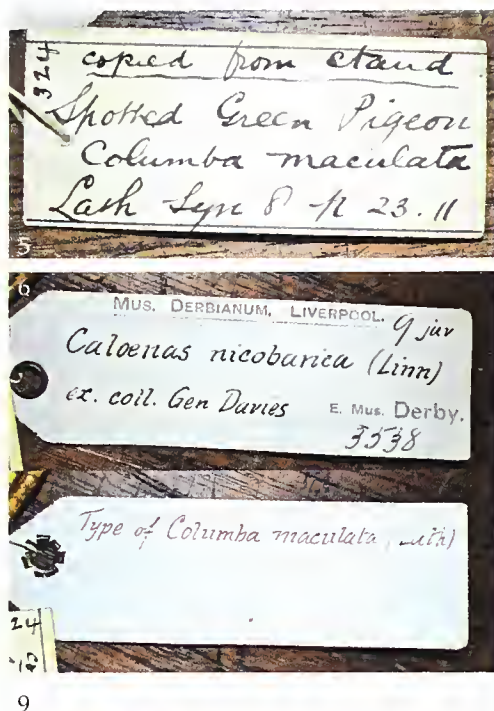 324
copied from stand
Spotted Green Pigeon
Columba maculata
Lath Syn 8 p 23.11
5
6
MUS. DERBIANUM, LIVERPOOL. juv
Caloenas nicobarica (Linn)
ex. coll. Gen Davies E. Mus. Derby.
3538
Type of Columba maculata
24
9